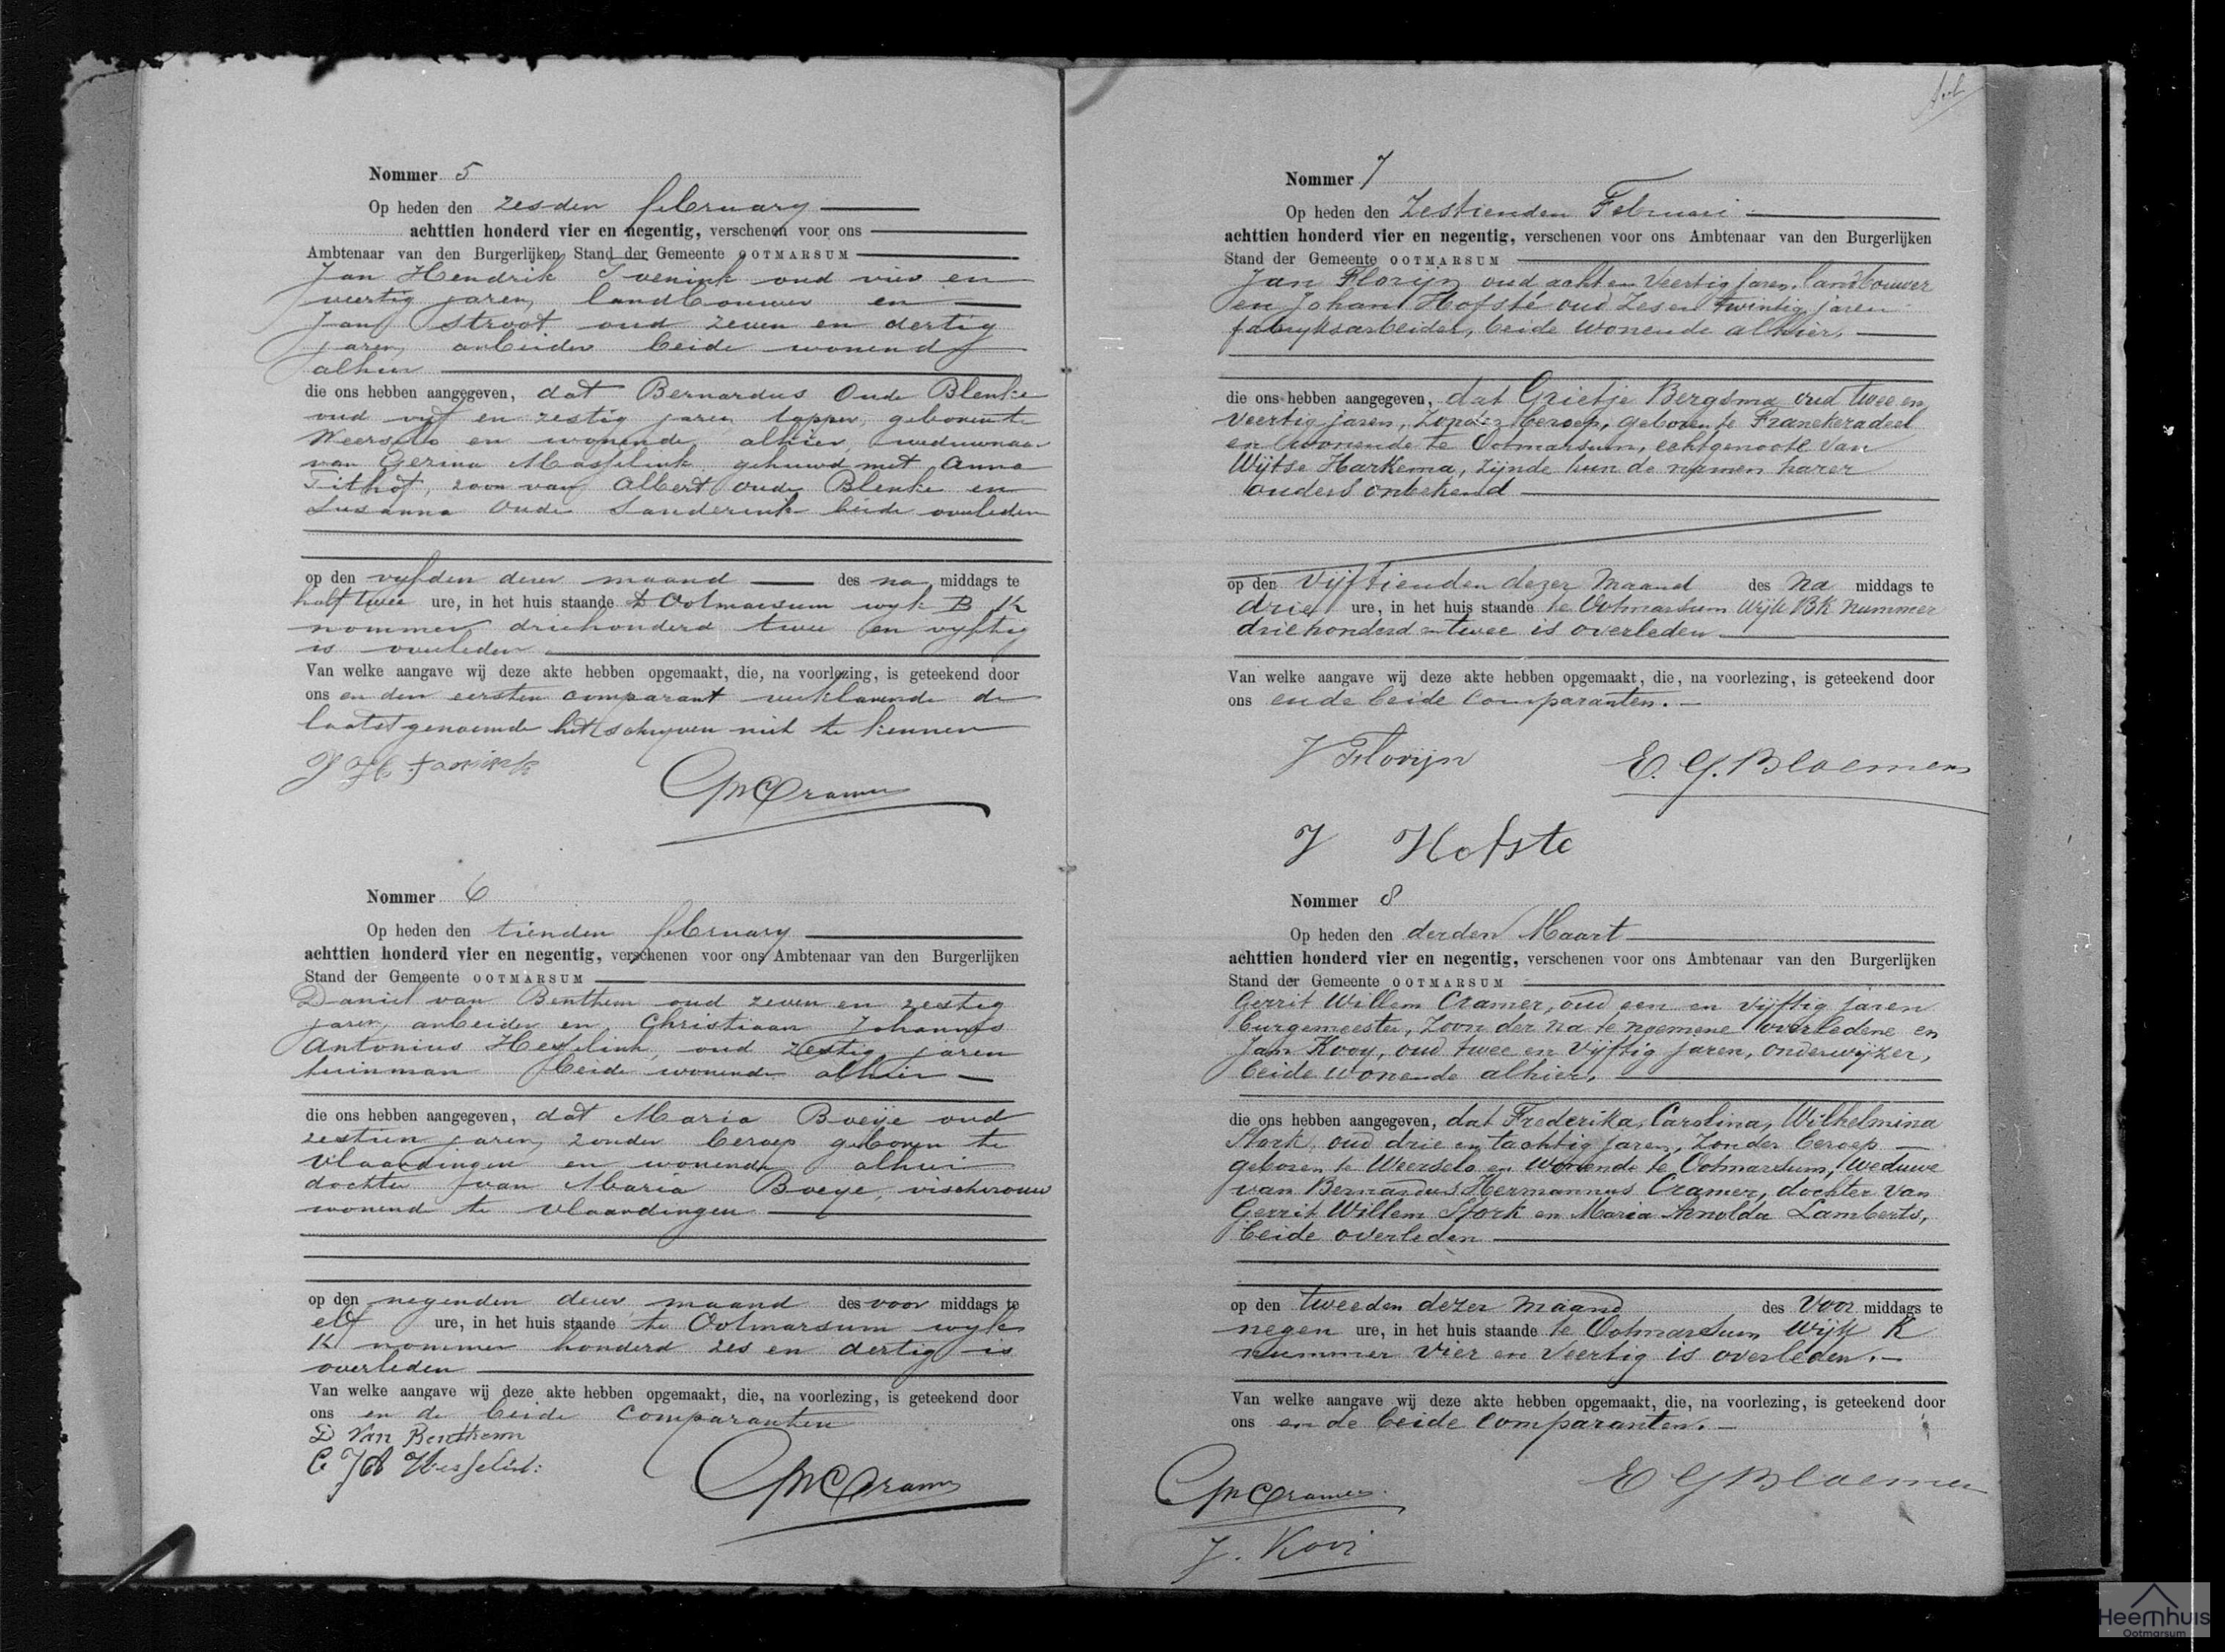 Nommer 5
Op heden den zesden february
achttien honderd vier en negentig, verschenen voor ons
Ambtenaar van den Burgerlijken Stand der Gemeente OOTMARSUM
Jan Hendrik oud vier en
veertig jaren, landbouwer en
Jan Stroot oud zeven en dertig
jaren, arbeider beide wonende
alhier
die ons hebben aangegeven, dat Bernardus Oude Blenke
oud vijf en zestig jaren tapper, geboren te
Weerselo en wonende alhier, weduwnaar
van Gezina Masselink gehuwd met Anna
Tithof, zoon van Albert Oude Blenke en
Susanna Oude Sanderink beide overleden
op den vijfden dezer maand des na middags te
half twee ure, in het huis staande te Ootmarsum wijk B K
nommer driehonderd twee en vijftig
is overleden
Van welke aangave wij deze akte hebben opgemaakt, die, na voorlezing, is geteekend door
ons en den eersten comparant verklarende de
laatstgenoemde het schrijven niet te kennen
GWCramer
Nommer 6
Op heden den tienden february
achttien honderd vier en negentig, verschenen voor ons Ambtenaar van den Burgerlijken
Stand der Gemeente OOTMARSUM
Daniel van Benthem oud zeven en zestig
jaren, arbeider en Christiaan Johannes
Antonius Hesselink, oud zestig jaren
tuinman beide wonende alhier
die ons hebben aangegeven, dat Maria Boeije oud
zestien jaren, zonder beroep geboren te
Vlaardingen en wonende alhier
dochter van Maria Boeye, vischvrouw
wonend te Vlaardingen
op den negenden dezer maand des voor middags te
elf ure, in het huis staande te Ootmarsum wijk
K nommer honderd zes en dertig is
overleden
Van welke aangave wij deze akte hebben opgemaakt, die, na voorlezing, is geteekend door
ons en de beide comparanten
D Van Benthem
C J A Hesselink
GWCramer
Nommer 7
Op heden den Zestienden Februari
achttien honderd vier en negentig, verschenen voor ons Ambtenaar van den Burgerlijken
Stand der Gemeente OOTMARSUM
Jan Florijn oud acht en Veertig jaren, landbouwer
en Johan Hofsté oud Zes en twintig jaren
fabryksarbeider, beide wonende alhier,
die ons hebben aangegeven, dat Grietje Bergsma oud twee en
Veertig jaren, Zonder beroep, geboren te Franekeradeel
en wonende te Ootmarsum, echtgenoote van
Wijtse Harkema, zijnde hun de namen harer
ouders onbekend
op den Vijftienden dezer Maand des Na middags te
drie ure, in het huis staande te Ootmarsum Wijk BK Nummer
driehonderd en twee is overleden.
Van welke aangave wij deze akte hebben opgemaakt, die, na voorlezing, is geteekend door
ons en de beide Comparanten.
J Florijn
E. G. Bloemen
J Hofste
Nommer 8
Op heden den derden Maart
achttien honderd vier en negentig, verschenen voor ons Ambtenaar van den Burgerlijken
Stand der Gemeente OOTMARSUM
Gerrit Willem Cramer, oud een en Vijftig jaren
burgemeester, Zoon der na te noemene overledene en
Jan Kooy, oud twee en Vijftig jaren, Onderwijzer,
beide wonende alhier,
die ons hebben aangegeven, dat Frederika, Carolina, Wilhelmina
Stork, oud drie en tachtig jaren, Zonder beroep
geboren te Weerselo en Wonende te Ootmarsum, Weduwe
van Bernardus Hermannus Cramer, dochter Van
Gerrit Willem Stork en Maria Arnolda Lamberts,
beide overleden
op den tweeden dezer Maand des Voor middags te
negen ure, in het huis staande te Ootmarsum Wijk K
nummer Vier en Veertig is overleden.
Van welke aangave wij deze akte hebben opgemaakt, die, na voorlezing, is geteekend door
ons en de beide comparanten.
GWCramer
E G Bloemen
J. Kooi
Heemhuis
Ootmarsum